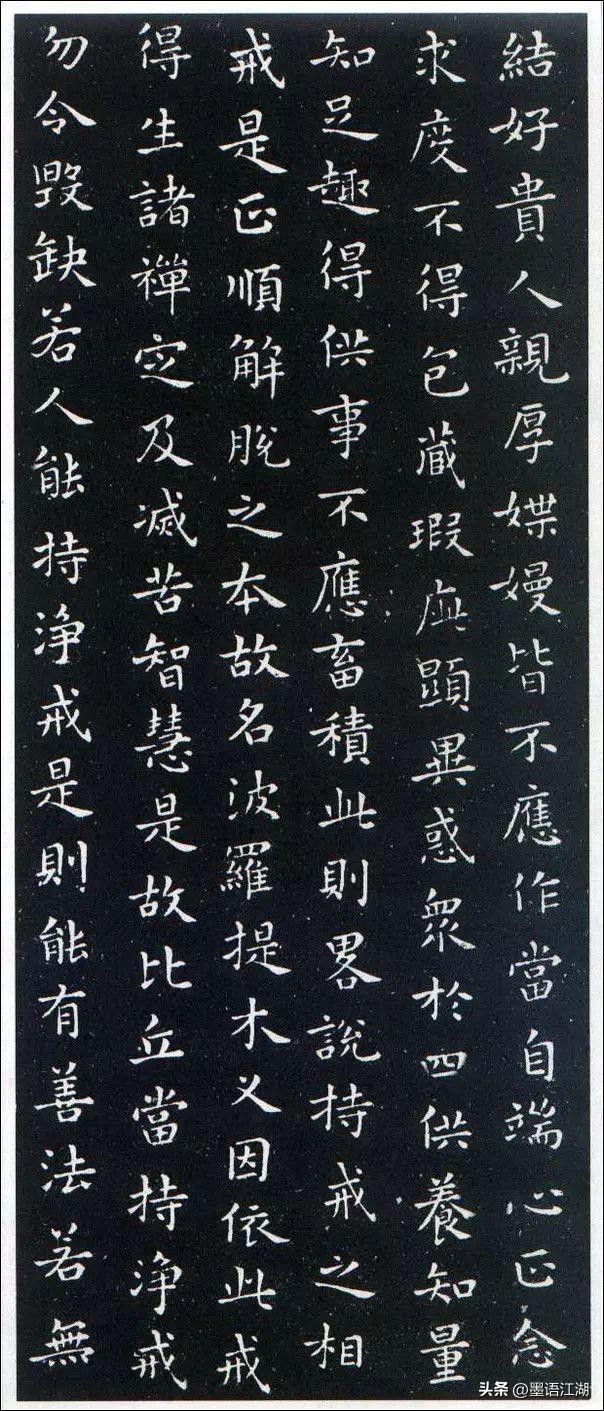 結好貴人親厚媟嫚皆不應作當自端心正念
求度不得包藏瑕疵顯異惑衆於四供養知量
知足趣得供事不應畜積此則畧說持戒之相
戒是正順解脫之本故名波羅提木叉因依此戒
得生諸禪定及滅苦智慧是故比丘當持淨戒
勿令毀缺若人能持淨戒是則能有善法若無
头条 @墨语江湖